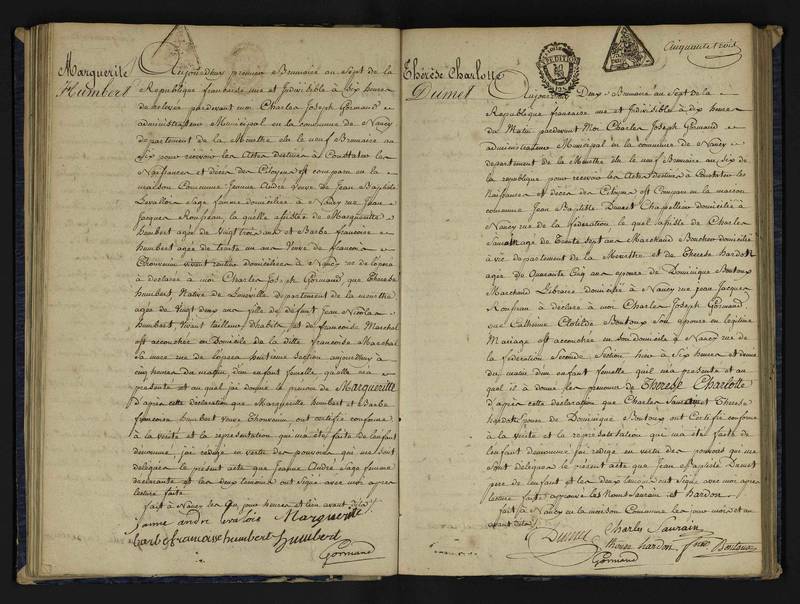 Marguerite
Humbert
Aujourd'huy premier Brumaire an Sept de la
Republique francaise une et Indivisible à Dix heures
de relevée pardevant moi Charles Joseph Gormand
administrateur Municipal en la commune de Nancy
departement de la Meurthe élu le neuf Brumaire an
Six pour recevoir les Actes destinés à Constater les
Naissances et décès des Citoyens est comparu en la
maison Commune Jeanne André veuve de Jean Baptiste
Levallois Sage femme domiciliée à Nancy rue Jean
Jacques Rousseau la quelle assistée de Marguerite
humbert agée de vingt trois ans et Barbe francoise
humbert agée de trente un ans veuve de francois
Thouvenin domiciliées à Nancy rue de lopera
à declarée à moi Charles Joseph Gormand, que Therese
humbert, Native de Luneville departement de la meurthe
agée de vingt deux ans fille de défunt Jean Nicolas
humbert, vivant tailleur d'habits et de francoise Marchal
est accouchée en Domicile de la ditte francoise Marchal
sa mere rue de lopera huitieme section aujourdhuy à
cinq heures du matin d'un enfant femelle qu'elle m'a
presenté et au quel j'ai donné le prénom de Margueritte
d'après cette declaration que Marguerite humbert et Barbe
francoise humbert veuve Thouvenin ont certifié conforme
à la verité et la representation qui m'a été faite de lenfant
denommé, j'ai redigé en vertu des pouvoirs qui me sont
delegués le présent acte que Jeanne André Sage femme
declarante et les deux temoins ont signé avec moi apres
lecture faite
fait à Nancy les jour heures et lieu avant dits
jeanne andré valois Marguerite
barbe francoise humbert humbert
Gormand
Cinquante trois
Thérèse Charlotte
Dumet
Aujourd'huy Deux Brumaire an Sept de la
Republique francaise une et Indivisible à dix heures
du Matin pardevant Moi Charles Joseph Gormand
administrateur Municipal en la commune de Nancy
departement de la Meurthe élu le neuf Brumaire an Six de
la republique pour recevoir les Actes destinés à Constater les
Naissances et décès des Citoyens est Comparu en la maison
commune Jean Baptiste Dumet Chapellier domicilié à
Nancy rue de la federation le quel assisté de Charles
Saurain agé de Trente Sept ans Marchand Boucher domicilié
à Vic departement de la Meurthe et de Therese hardon
agée de Quarante Cinq ans epouse de Dominique Boutoux
Marchand Libraire domicilié à Nancy rue Jean Jacques
Rousseau à declaré à moi Charles Joseph Gormand
que Catherine Clotilde Boutoux Son epouse en legitime
Mariage est accouchée en Son domicile à Nancy rue de
la federation Seconde Section hier à Six heures et demie
du matin d'un enfant femelle qu'il m'a presenté et au
quel il à donné les prenoms de Therese Charlotte
d'après cette declaration que Charles Saurain et Therese
hardon epouse de Dominique Boutoux ont Certifié conforme
à la verité et la representation qui m'a été faite de
lenfant denommé j'ai redigé en vertu des pouvoirs qui me
Sont delegués le présent acte que Jean Baptiste Dumet
pere de lenfant et les deux temoins ont Signé avec moi apres
lecture faite approuvé les Noms Saurain et hardon.
fait à Nancy en la maison Commune les jour mois et an
avant dits
Dumet Charles Saurain
therese hardon feme Boutoux
Gormand